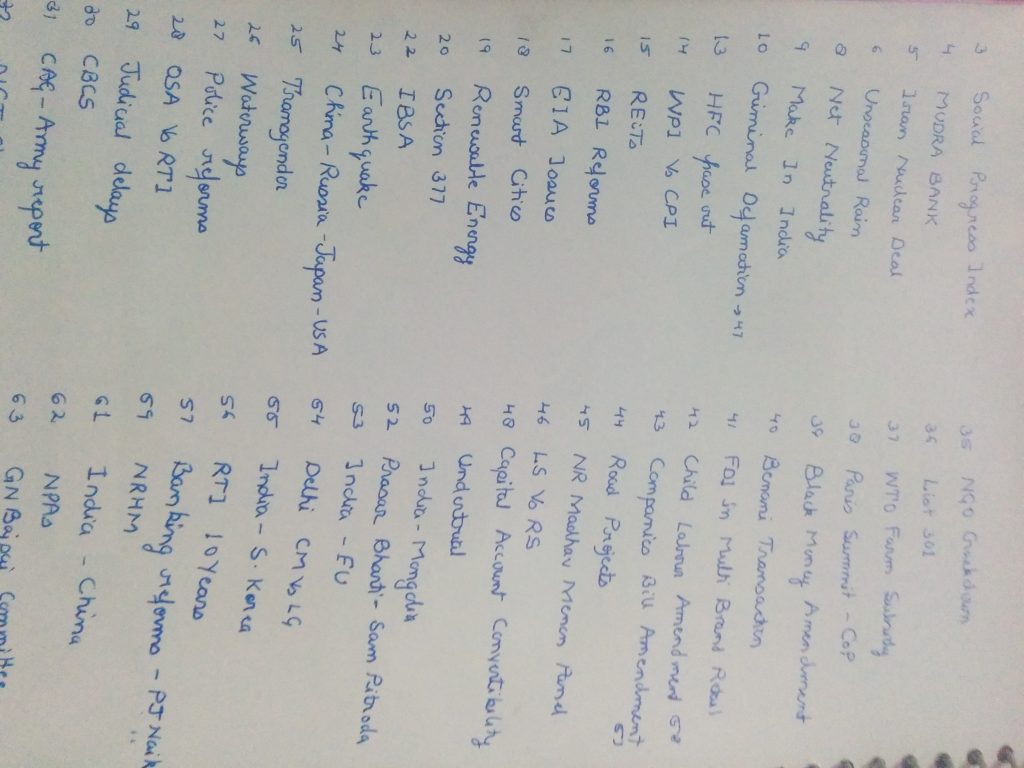 3 Social Progress Index
4 MUDRA BANK
5 Iran Nuclear Deal
6 Unseasonal Rain
8 Net Neutrality
9 Make In India
10 Criminal Defamation → 47
13 HFC phase out
14 WPI Vs CPI
15 REITs
16 RBI Reforms
17 EIA Issues
18 Smart Cities
19 Renewable Energy
20 Section 377
22 IBSA
23 Earthquake
24 China-Russia-Japan-USA
25 Transgender
26 Waterways
27 Police reforms
28 OSA Vs RTI
29 Judicial delays
30 CBCS
31 CAG-Army report
35 NGO Crackdown
36 List 301
37 WTO Farm Subsidy
38 Paris Summit - COP
39 Black Money Amendment
40 Benami Transaction
41 FDI in Multi Brand Retail
42 Child Labour Amendment 58
43 Companies Bill Amendment 51
44 Road Projects
45 NR Madhav Menon Panel
46 LS Vs RS
48 Capital Account Convertibility
49 Undertrial
50 India-Mongolia
52 Prasar Bharti - Sam Pitroda
53 India - EU
54 Delhi CM Vs LG
55 India - S. Korea
56 RTI 10 Years
57 Banking reforms - PJ Naik
59 NRHM
61 India - China
62 NPAs
63 GN Bajpai Committee